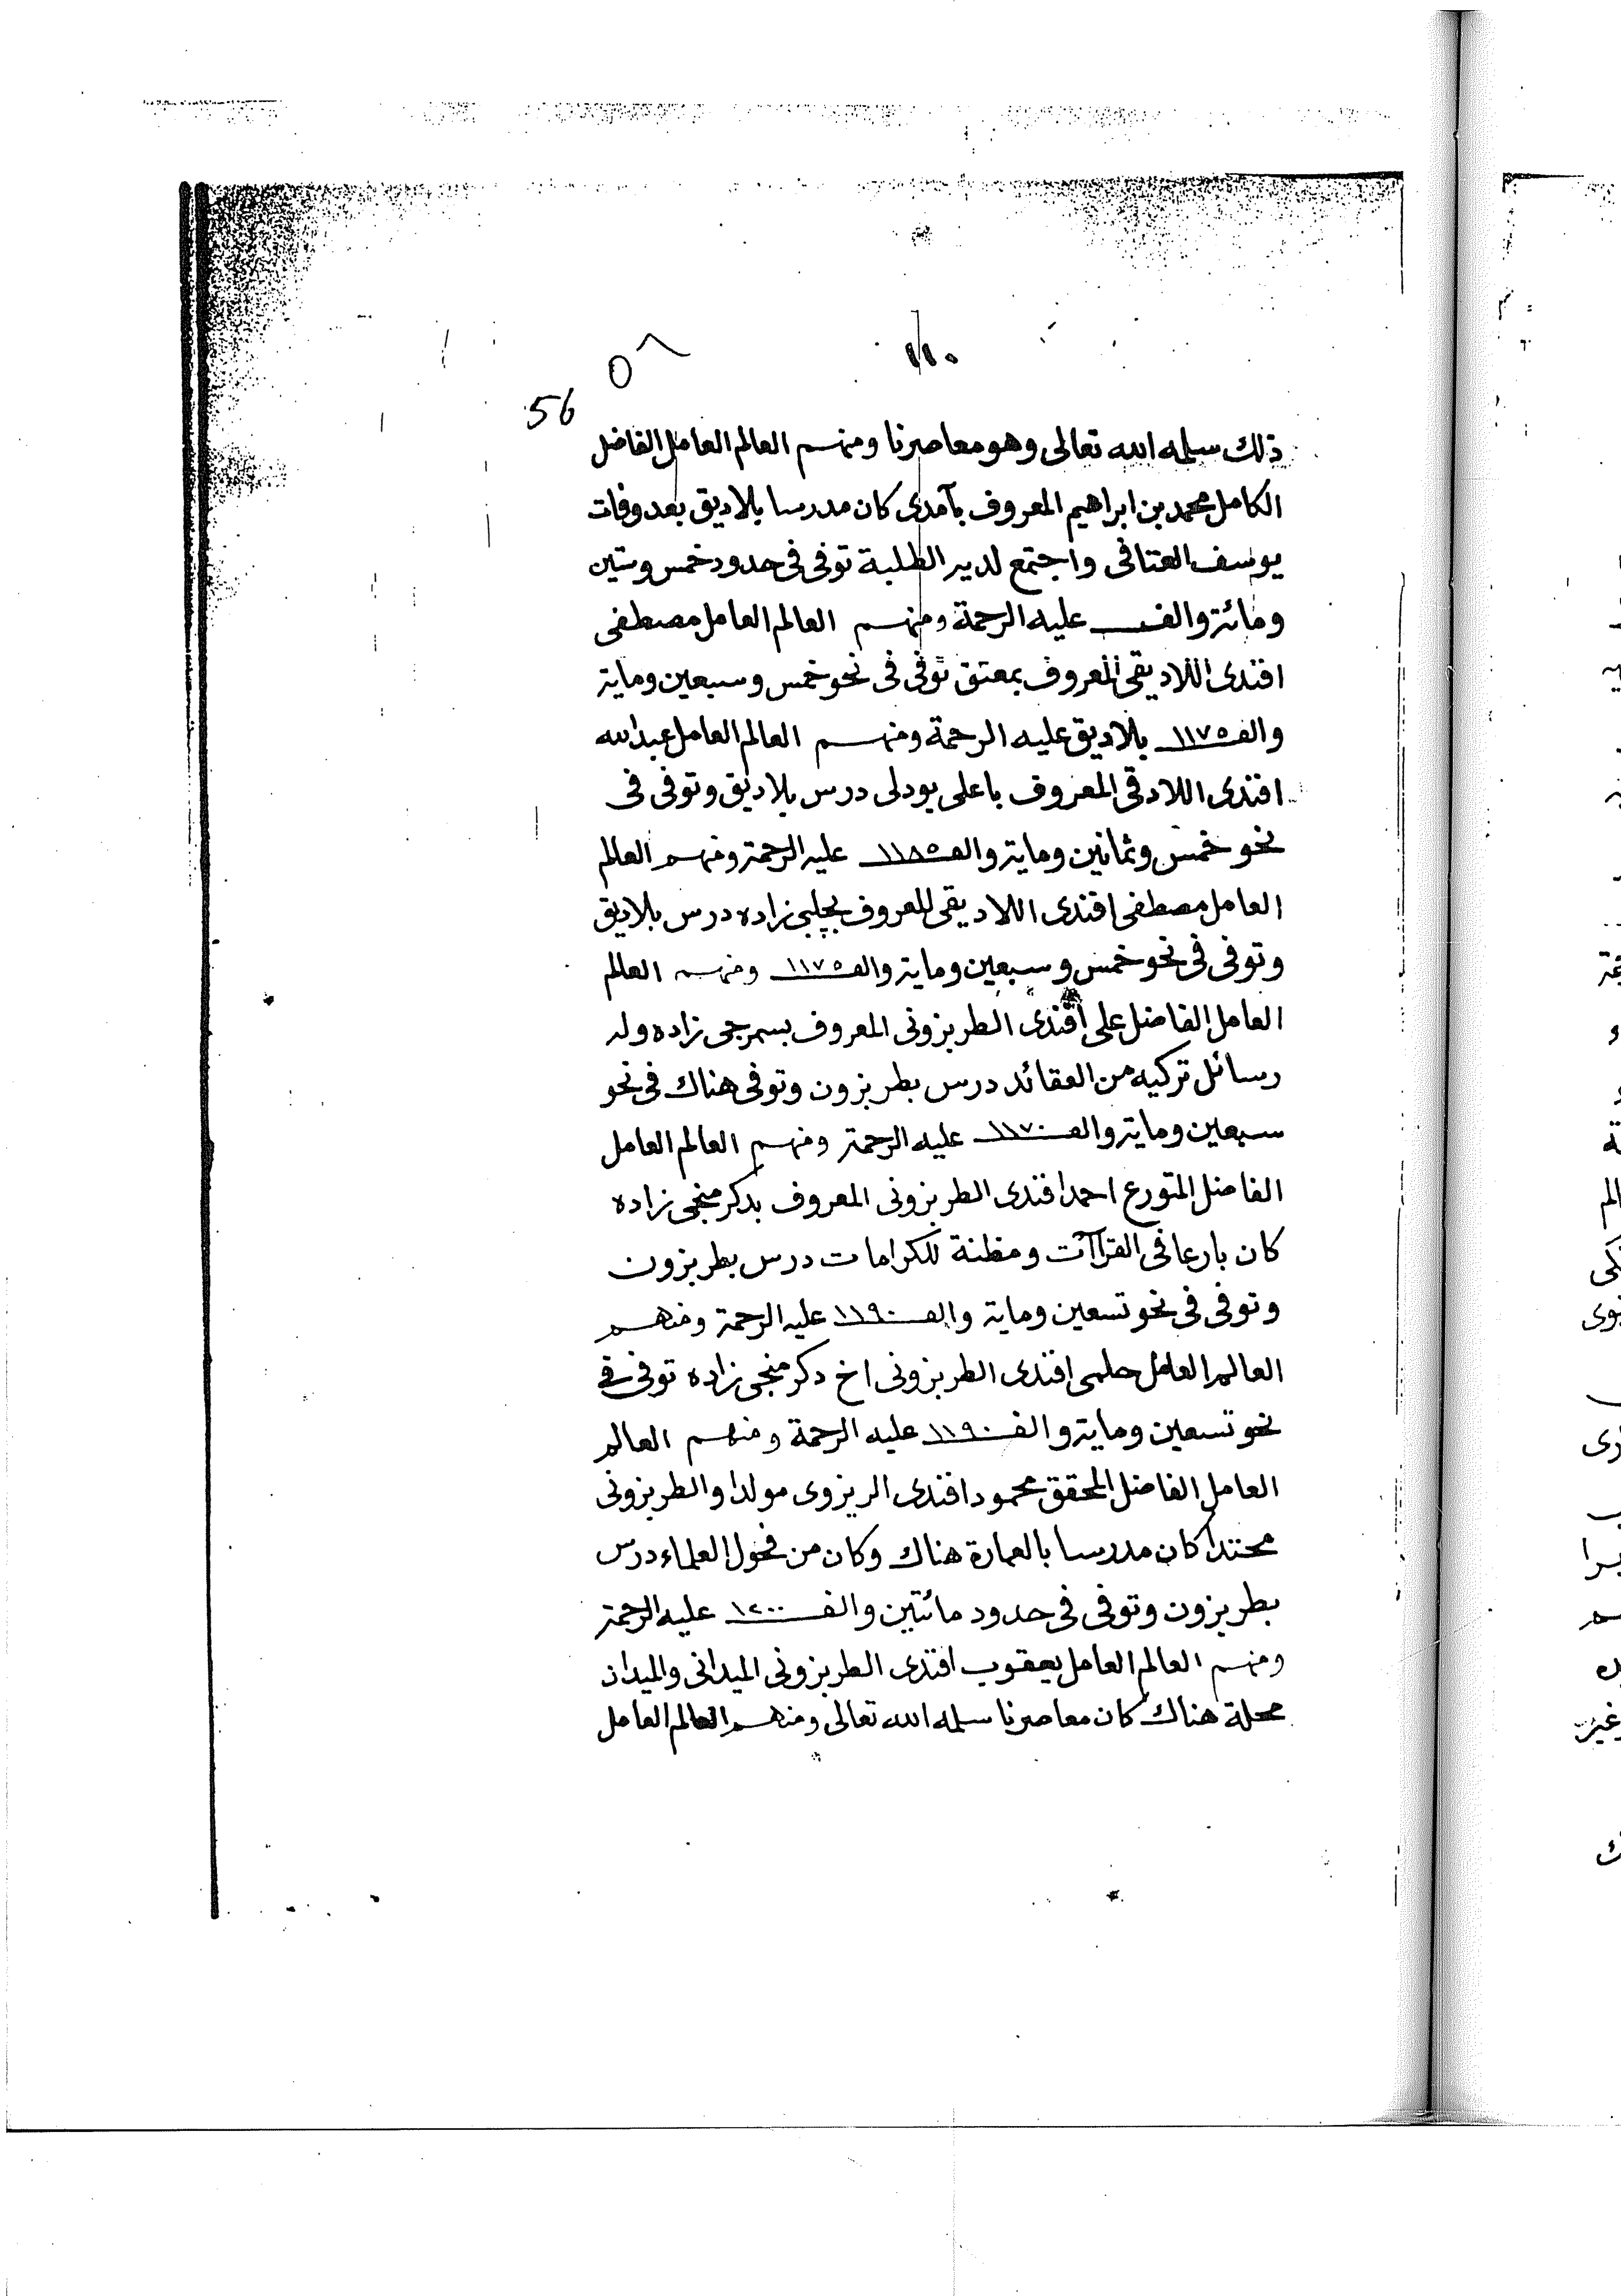 ١١٠
٥٨
56
ذلك سلمه الله تعالى وهو معاصرنا ومنهم العالم العامل الفاضل
الكامل محمد بن ابراهيم المعروف بآمدى كان مدرسا بلاديق بعد وفات
يوسف العتاقى واجتمع لديه الطلبة توفى فى حدود خمس وستين
ومائة والف عليه الرحمة ومنهم العالم العامل مصطفى
افندى اللاديقى المعروف بمعتق توفى فى نحو خمس وسبعين وماية
والف ١١٧٥ بلاديق عليه الرحمة ومنهم العالم العامل عبدالله
افندى اللادقى المعروف باعلى بودلى درس بلاديق وتوفى فى
نحو خمس وثمانين وماية والف ١١٨٥ عليه الرحمة ومنهم العالم
العامل مصطفى افندى اللاديقى المعروف بچلبى زاده درس بلاديق
وتوفى فى نحو خمس وسبعين وماية والف ١١٧٥ ومنهم العالم
العامل الفاضل على افندى الطربزونى المعروف بسمرجى زاده وله
رسائل تركيه من العقائد درس بطربزون وتوفى هناك فى نحو
سبعين وماية والف ١١٧٠ عليه الرحمة ومنهم العالم العامل
الفاضل المتورع احمد افندى الطربزونى المعروف بدكرمنجى زاده
كان بارعا فى القراآت ومظنة للكرامات درس بطربزون
وتوفى فى نحو تسعين وماية والف ١١٩٠ عليه الرحمة ومنهم
العالم العامل حلمى افندى الطربزونى اخ دكرمنجى زاده توفى فى
نحو تسعين وماية والف ١١٩٠ عليه الرحمة ومنهم العالم
العامل الفاضل المحقق محمود افندى الريزوى مولدا والطربزونى
محتدا كان مدرسا بالعمارة هناك وكان من فحول العلماء درس
بطربزون وتوفى فى حدود مائتين والف ١٢٠٠ عليه الرحمة
ومنهم العالم العامل يعقوب افندى الطربزونى الميدانى والميدان
محلة هناك كان معاصرنا سلمه الله تعالى ومنهم العالم العامل